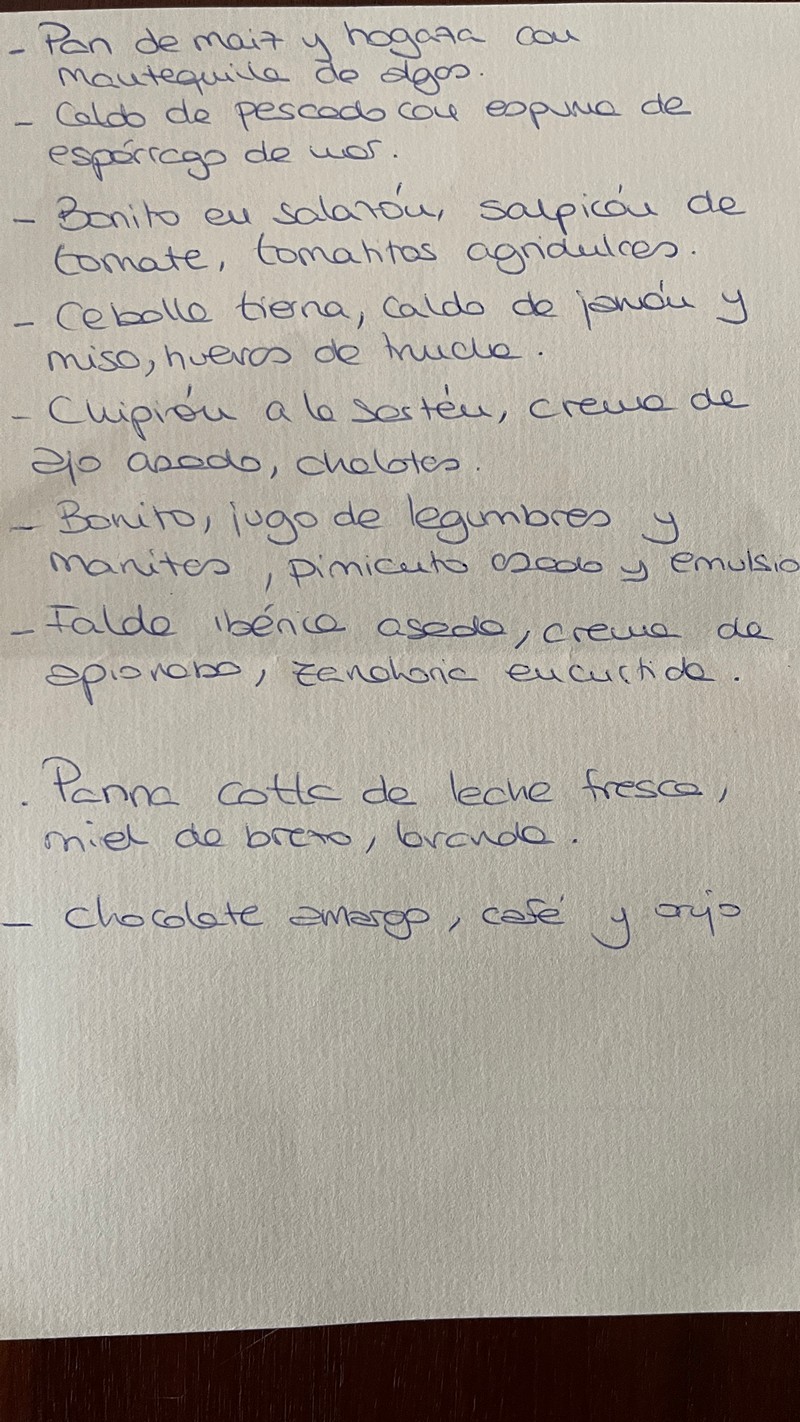 - Pan de maiz y hogaza con
mantequilla de algas.
- Caldo de pescado con espuma de
espárrago de mar.
- Bonito en salazón, salpicón de
tomate, tomatitos agridulces.
- Cebolla tierna, caldo de jamón y
miso, huevos de trucha.
- Chipirón a la sartén, crema de
ajo asado, chalotes.
- Bonito, jugo de legumbres y
manitas, pimiento asado y emulsio
- Falda ibérica asada, crema de
apionabo, zanahoria encurtida.
. Panna cotta de leche fresca,
miel de brezo, lavanda.
- Chocolate amargo, café y orujo